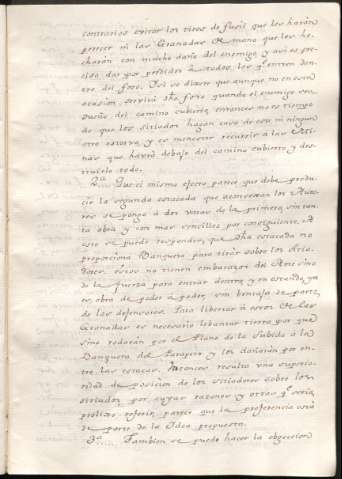 contrarios evitar los tiros de fusil que les harán
perecer ni las Granadas de mano que les he-
charán con mucho daño del enemigo, y asi es pre-
ciso dar por perdidos à todos, los q.e entren den-
tro del foso. Asi es decir que aunque no en esta
ocasion, servirá dho foso quando el enemigo
dueño del camino cubierto, entonces no es tiempo
de que los sitiados hagan caso de esa ni ninguna
otra estorva, y es menester recurrir a las Mi-
nas que havrá debajo del camino cubierto y des-
truirlo todo.
2.a Que el mismo efecto parece que debe produ-
cir la segunda estacada que aconsejan los Auto-
res se ponga à dos varas de la primera sin tan-
ta obra y con mas sencillez por consiguiente. A
esto se puede responder, que dha estacada no
proporciona Banqueta para tirar sobre los Sitia-
dores: estos no tienen embarazo del Arte sino
de la fuerza para entrar dentro, y en estando, ya
es, obra de poder à poder, sin ventaja de parte
de los defensores. Para libertar à estos de las
Granadas es necesario lebantar tierra por que
sino rodarán por el Plano de la subida à la
Banqueta del Parapeto y los dañarán por en-
tre las estacas. Entonces resulta una superio-
ridad de posicion de los sitiadores sobre los
sitiados por cuyas razones y otras q.e seria
prolixo referir, parece que la preferencia está
de parte de la Idea propuesta.
3.a Tambien se puede hacer la objeccion